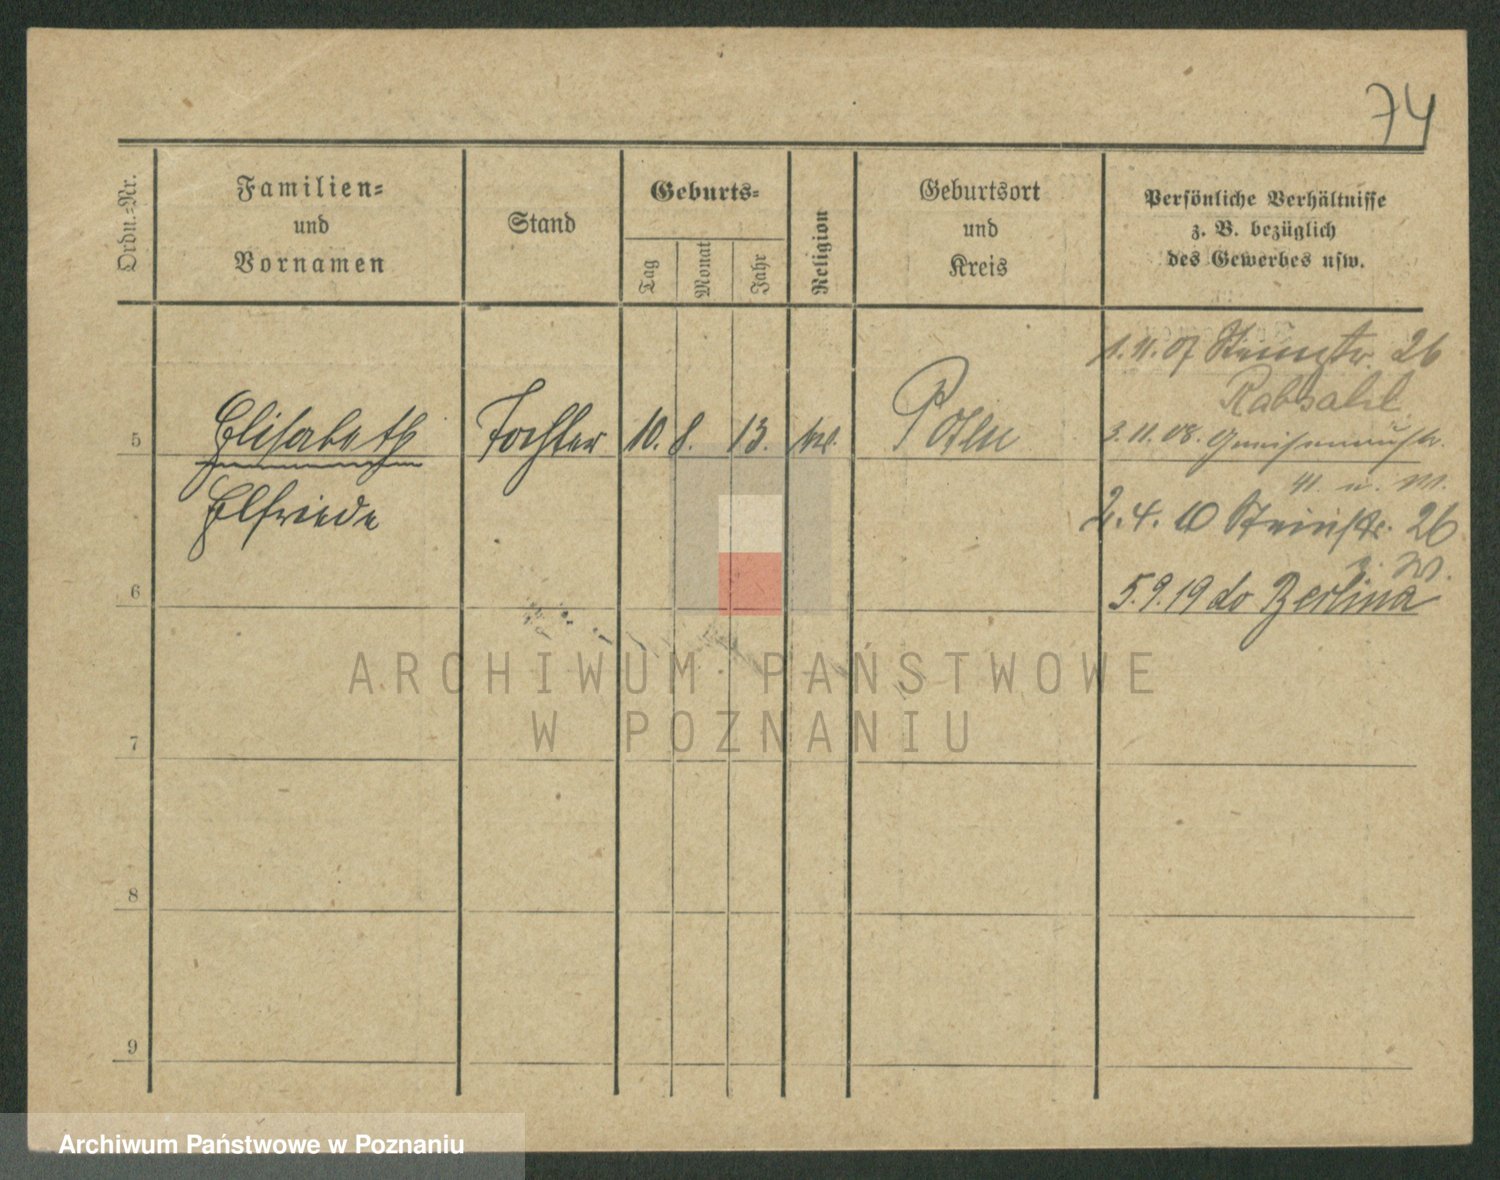 74
Ordn.=Nr.
Familien=
und
Vornamen
Stand
Geburts=
Tag
Monat
Jahr
Religion
Geburtsort
und
Kreis
Persönliche Verhältnisse
z. B. bezüglich
des Gewerbes usw.
1.11.07 26
Rabsahl
5 Elisabeth Tochter 10. 8. 13. Posen
3.11.08. Gneisenaustr.
Elfriede
2.4.10 Steinstr. 26
6
5.9.19 do Berlina
ARCHIWUM PAŃSTWOWE
W POZNANIU
7
8
9
Archiwum Państwowe w Poznaniu